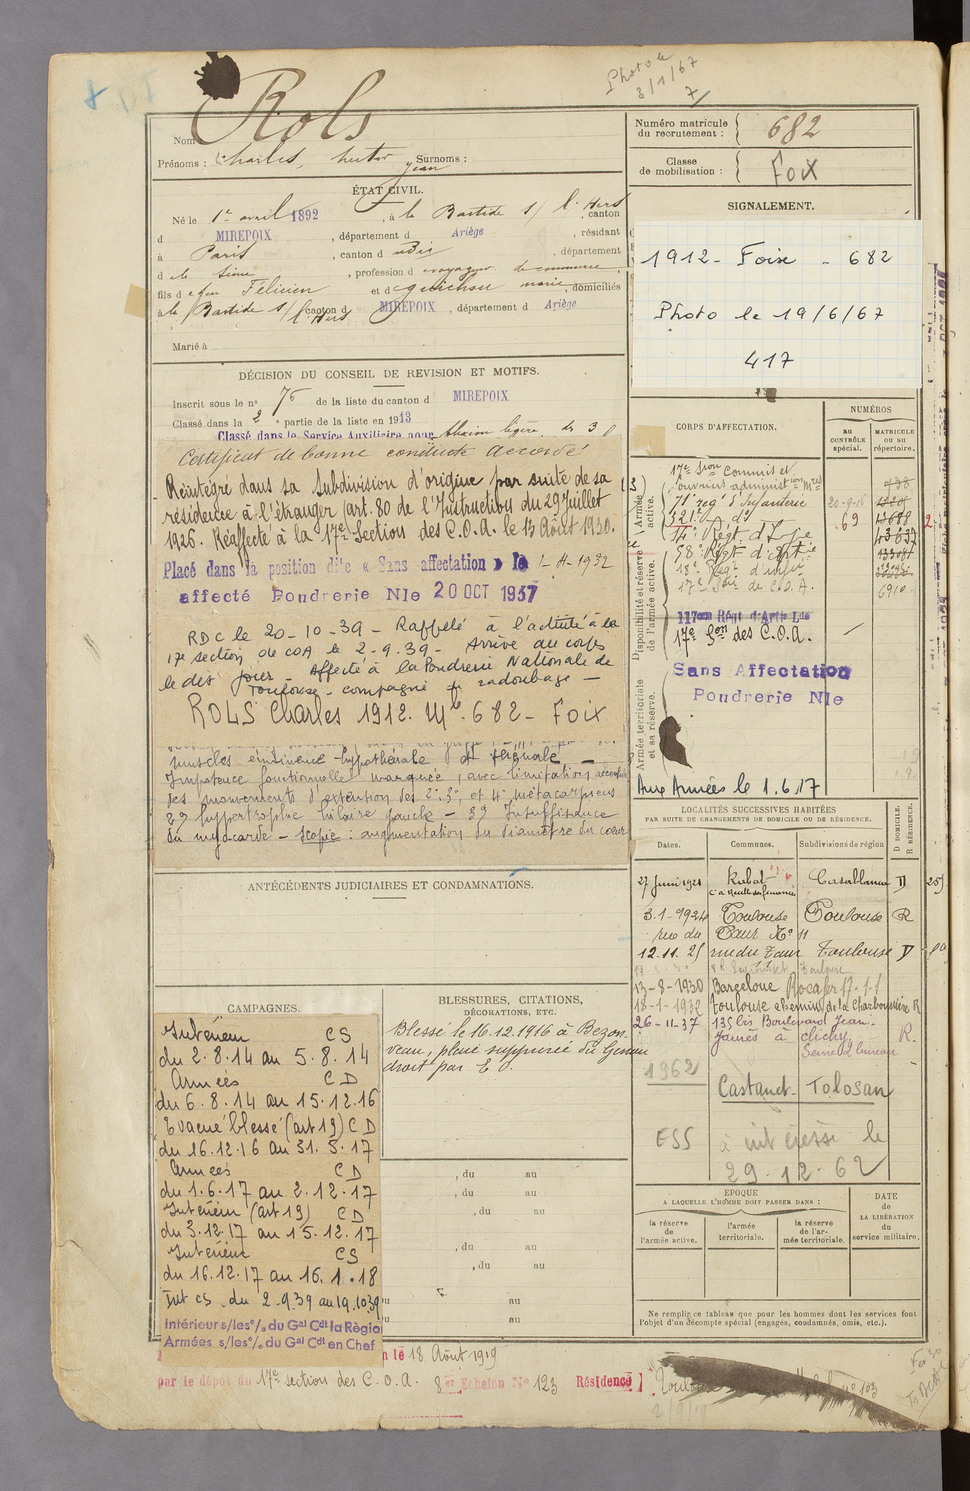 Photo le
3/1/67
7
Rols
Nom
Prénoms : Charles, hector Jean Surnoms :
Numéro matricule du recrutement : 682
Classe de mobilisation : Foix
ÉTAT CIVIL.
Né le 1er avril 1892, à la Bastide s/ l'Hers canton
d MIREPOIX, département d Ariège, résidant
à Paris, canton d, département
d e la Seine, profession d voyageur de commerce,
fils d feu Félicien et d marie, domiciliés
à la Bastide s/ l'Hers canton d MIREPOIX, département d Ariège
Marié à
SIGNALEMENT.
1912 - Foix - 682
Photo le 19/6/67
417
DÉCISION DU CONSEIL DE REVISION ET MOTIFS.
Inscrit sous le n° 76 de la liste du canton d MIREPOIX
Classé dans la 2e partie de la liste en 1913
Classé dans le Service Auxiliaire pour
Certificat de bonne conduite Accordé
Réintégré dans sa Subdivision d'origine par suite de sa
résidence à l'étranger (art. 80 de l'Instruction du 29 Juillet
1926. Réaffecté à la 17e Section des C.O.A. le 13 Août 1930.
Placé dans la position dite « Sans affectation » le 1-4-1932
affecté Poudrerie Nle 20 OCT 1937
RDC le 20-10-39 - Rappelé à l'activité à la
17e section de COA le 2-9-39 - Arrivé au corps
le dit jour - Affecté à la Poudrerie Nationale de
Toulouse - compagnie de radoubage -
ROLS Charles 1912. Mle 682 - Foix
muscles éminence hypothénar et thénar -
Impotence fonctionnelle marquée, avec limitation
des mouvements d'extension des 2e, 3e, et 4e métacarpiens
2° hypertrophie hilaire gauche - 3° Insuffisance
du myocarde - Scopie : augmentation du diamètre du coeur
CORPS D'AFFECTATION.
NUMÉROS
au CONTRÔLE spécial.
MATRICULE ou au répertoire.
Armée active.
17e Son Commis et
ouvriers administ
rég d'Infanterie 20-9-16
321e d° 69
Régt d'Inf 43637
58e Régt d'Artie
18e Régt d'inf
17e Son de C.O.A. 6910
Disponibilité et réserve de l'armée active.
117eme Régt d'Artie Lde
17e Son des C.O.A.
Sans Affectation
Poudrerie Nle
Armée territoriale et sa réserve.
Aux Armées le 1.6.17
LOCALITÉS SUCCESSIVES HABITÉES
PAR SUITE DE CHANGEMENTS DE DOMICILE OU DE RÉSIDENCE.
Dates. Communes. Subdivisions de région D DOMICILE. R RÉSIDENCE.
27 Juin 1921 Rabat Casablanca D
3-1-1924 Toulouse Toulouse R
rue du Taur No 11
12.11.25 rue du Taur Toulouse D
13-8-1930 Barcelone
18-1-1932 Toulouse chemin de la Charbonnière R
26-11-37 135 bis Boulevard Jean-
Jaurès à Clichy R.
Seine 2e bureau
1962
Castanet - Tolosan
ESS à intéressé le
29.12.62
ANTÉCÉDENTS JUDICIAIRES ET CONDAMNATIONS.
CAMPAGNES.
Intérieur CS
du 2.8.14 au 5.8.14
Armées CD
du 6.8.14 au 15.12.16
Evacué blessé (art 19) CD
du 16.12.16 au 31.5.17
Armées CD
du 1.6.17 au 2.12.17
Intérieur (art 19) CD
du 3.12.17 au 15.12.17
Intérieur CS
du 16.12.17 au 16.1.18
Int CS. du 2-9-39 au 19.10.39
Intérieur s/les o/o du Gal Cdt la Région
Armées s/les o/o du Gal Cdt en Chef
BLESSURES, CITATIONS,
DÉCORATIONS, ETC.
Blessé le 16.12.1916 à Bezon-
vaux, plaie suppurée du Genou
droit par EO.
, du au
, du au
, du au
, du au
, du au
au
au
ÉPOQUE
A LAQUELLE L'HOMME DOIT PASSER DANS :
la réserve de l'armée active.
l'armée territoriale.
la réserve de l'armée territoriale.
DATE de LA LIBÉRATION du service militaire.
Ne remplir ce tableau que pour les hommes dont les services font
l'objet d'un décompte spécial (engagés, condamnés, omis, etc.).
le 18 Août 1919
par le dépôt du 17e section des C.O.A. 8er Echelon N° 123 Résidence